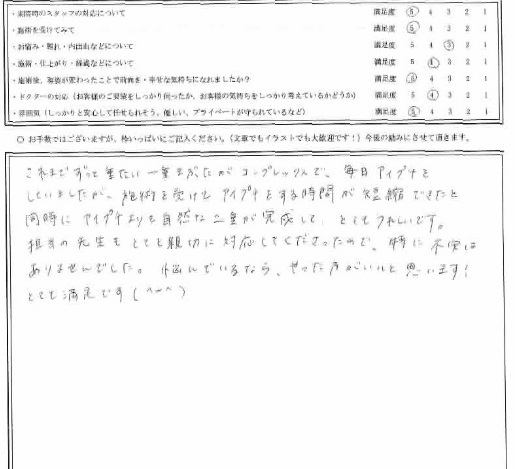 ・来院時のスタッフの対応について 満足度 5 4 3 2 1
・施術を受けてみて 満足度 5 4 3 2 1
・お痛み・腫れ・内出血などについて 満足度 5 4 3 2 1
・施術・仕上がり・経過などについて 満足度 5 4 3 2 1
・施術後、容姿が変わったことで前向き・幸せな気持ちになれましたか? 満足度 5 4 3 2 1
・ドクターの対応（お客様のご要望をしっかり伺ったか、お客様の気持ちをしっかり考えているかどうか） 満足度 5 4 3 2 1
・雰囲気（しっかりと安心して任せられそう、優しい、プライベートが守られているなど） 満足度 5 4 3 2 1
○ お手数ではございますが、枠いっぱいにご記入ください。（文章でもイラストでも大歓迎です！）今後の励みにさせて頂きます。
これまでずっと重たい一重まぶたがコンプレックスで、毎日アイプチを
していましたが、施術を受けてアイプチをする時間が短縮できたと
同時にアイプチよりも自然な二重が完成して、とてもうれしいです。
担当の先生もとても親切に対応してくださったので、特に不安は
ありませんでした。悩んでいるなら、やった方がいいと思います！
とても満足です(^ー^)